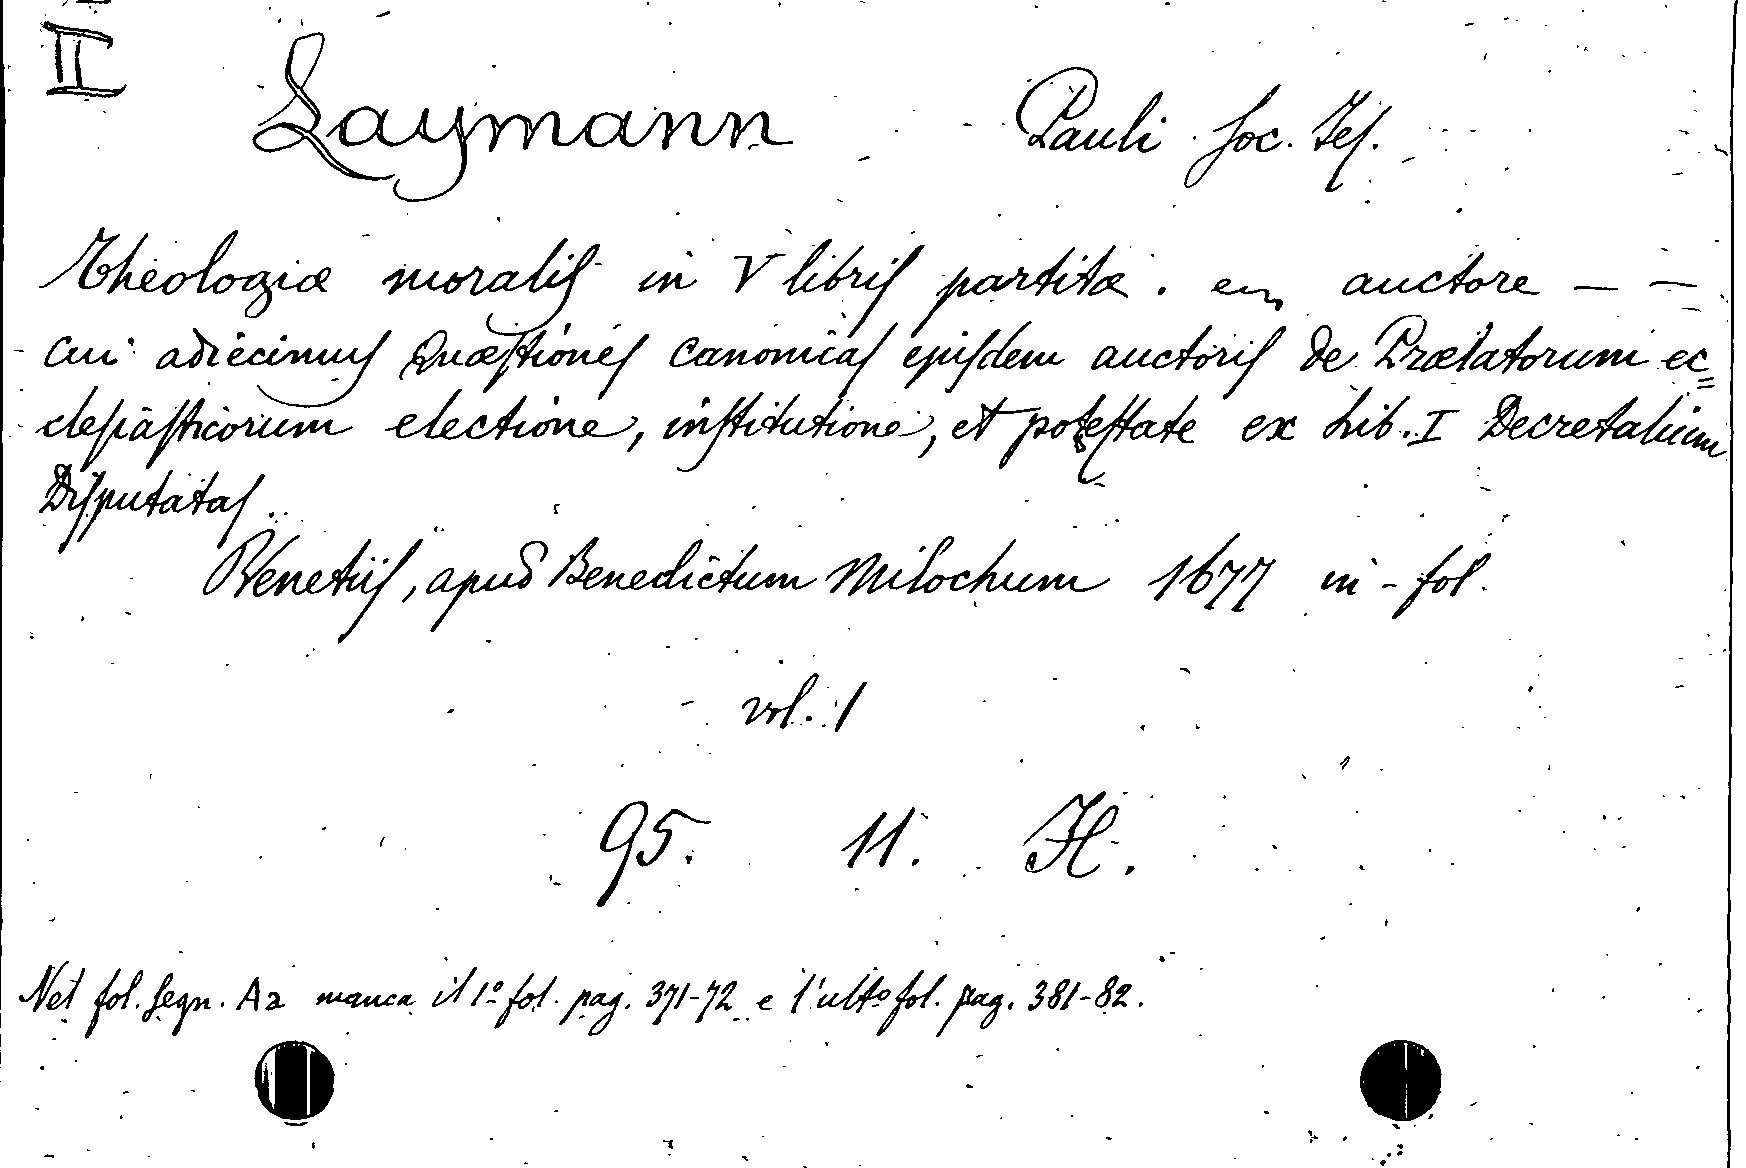 II
Laymann Pauli Soc. Jes.
Theologiæ moralis in V libris partitæ. auctore — —
cui adiecimus Quæstiones canonicas ejusdem auctoris de Prælatorum ec=
clesiasticorum electione, institutione, et potestate ex Lib. I Decretalium
Disputatas.
Venetiis, apud Benedictum Milochum 1677 in-fol.
vol. 1
95. 11. H.
Nel fol. segn. Aa manca il 1º fol. pag. 371-72 e l'ultº fol. pag. 381-82.